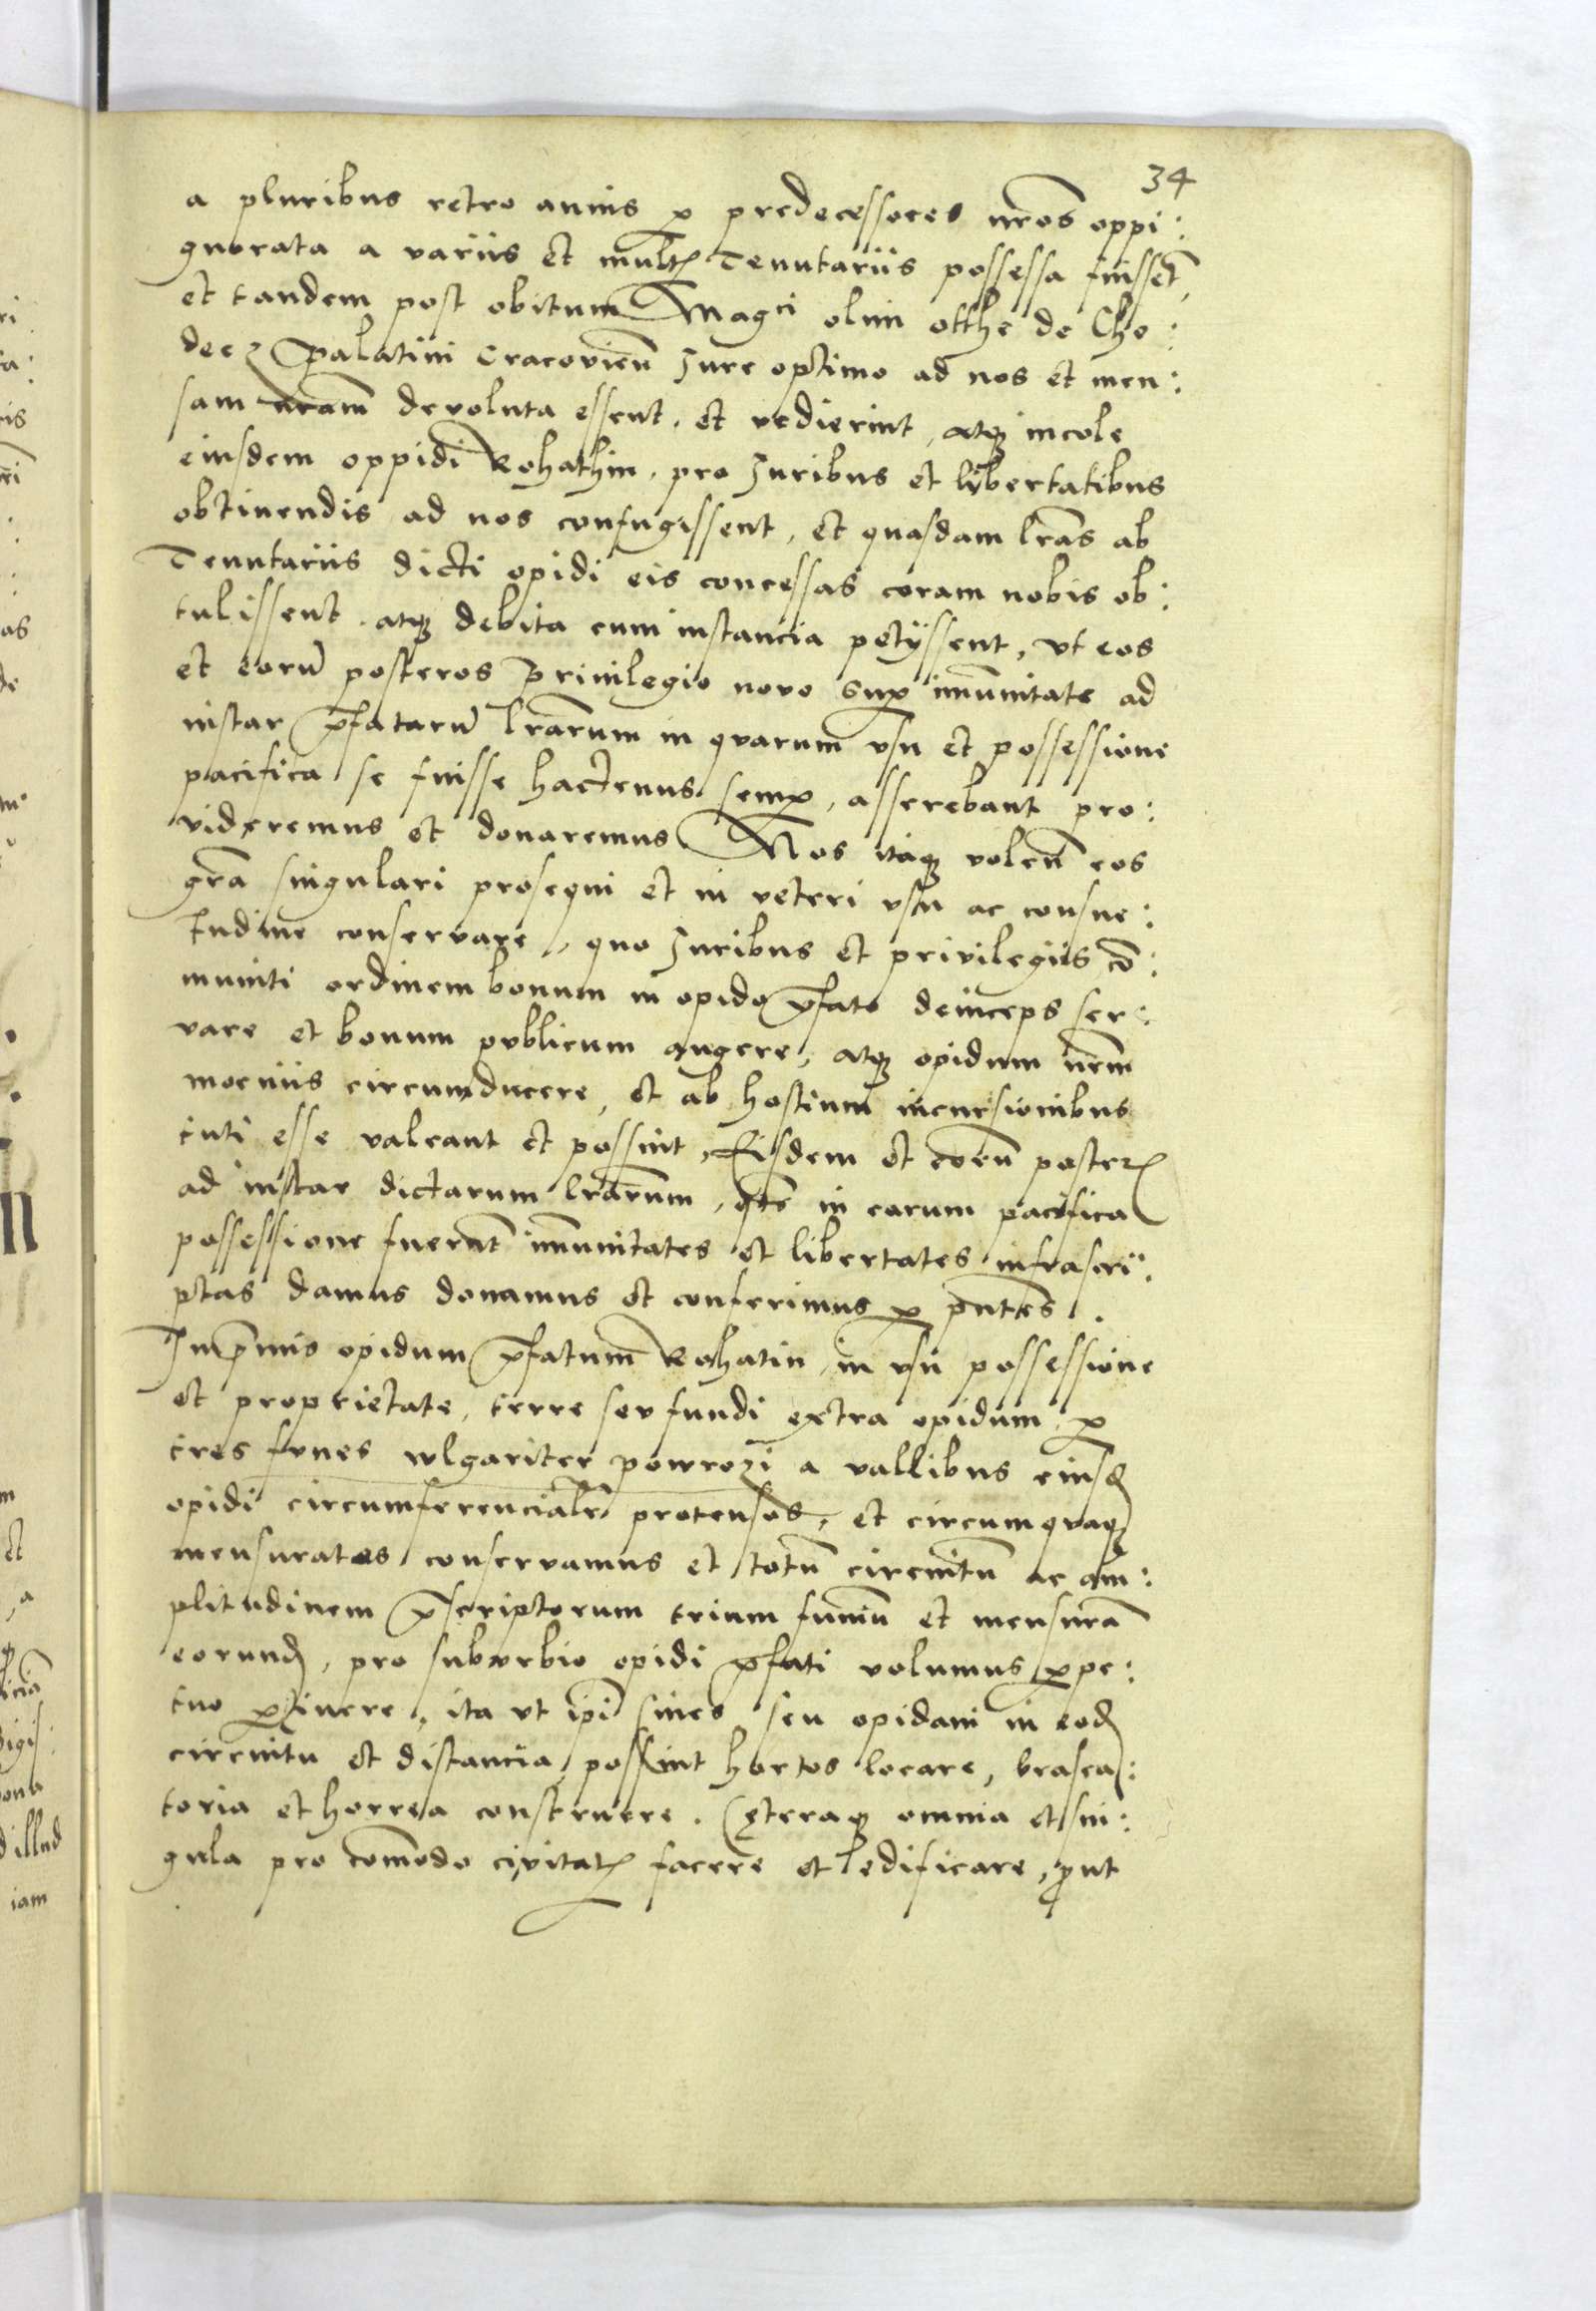 34
a pluribus retro annis ꝑ predecessores nr̃os oppi:
gnorata a variis et mult[is] Tenutariis possessa fuissẽt,
et tandem post obitum Magci olim otthe de Cho:
decz Palatini Cracovieñ Jure optimo ad nos et men:
sam nr̃am devoluta essent, et redierint, atqꝫ incole
eiusdem oppidi Rohathin, pro Juribus et lybertatibus
obtinendis ad nos confugissent, et quasdam lr̃as ab
Tenutariis dicti opidi eis concessas coram nobis ob:
tulissent, atqꝫ debita cum instancia petyssent, vt eos
et eorũ posteros Privilegio novo supꝑ im̃unitate ad
instar p̃fatarũ lr̃arum in quarum vsu et possessione
pacifica se fuisse hactenus sempꝑ, asserebant pro:
videremus et donaremus Nos itaqꝫ voleñ eos
gr̃a singulari prosequi et in veteri vsu ac consue:
tudine conservare, quo Juribus et privilegiis cõ:
muniti ordinem bonum in opido p̃fato deinceps ser:
vare et bonum publicum augere, atqꝫ opidum nr̃m
moeniis circumducere, et ab hostium incursionibus
tuti esse valeant et possint, Eisdem et eorũ poster[is]
ad instar dictarum lr̃arum, q̃s in earum pacifica
possessione fuerũt im̃unitates et libertates infrascri:
ptas damus donamus et conferimus ꝑ p̃ntes.
Inp̃mis opidum p̃fatum Rohatin, in vsu possessione
et proprietate, terre seu fundi extra opidum, ꝑ
tres funes wlgariter powrozi a vallibus eiusd[em]
opidi circumferencialr̃ protensos, et circumquaqꝫ
mensuratos conservamus et totũ circuitũ ac am:
plitudinem p̃scriptorum trium funiũ et mensurã
eorund[em], pro suburbio opidi p̃fati volumus ꝑpe:
tuo ꝑtinere, ita vt ip̃i cives seu opidani in eod[em]
circuitu et distancia possint hortos locare, brasea:
toria et horrea construere. Ceteraqꝫ omnia et sin:
gula pro com̃odo civitat[is] facere et edificare, ꝓut